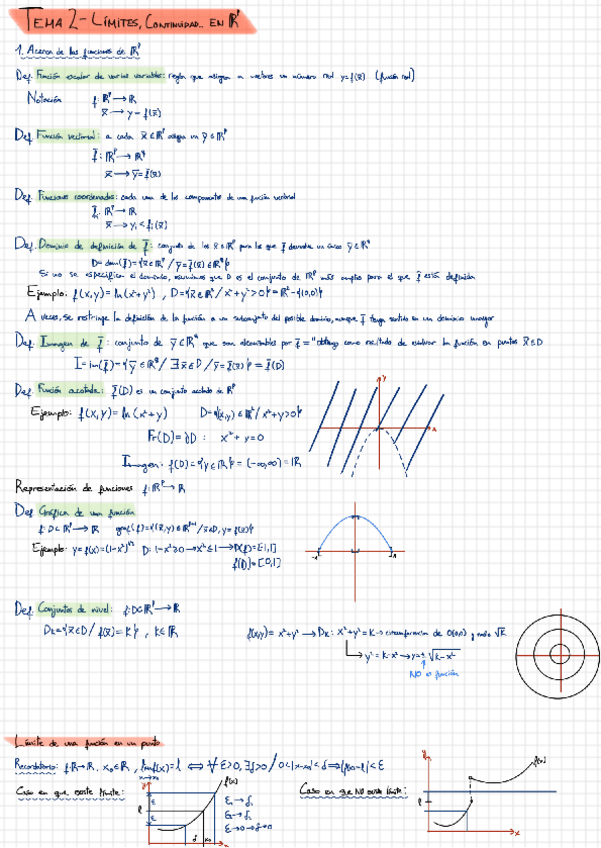 TEMA 2 - LÍMITES, CONTINUIDAD... EN ℝᵖ
1. Acerca de las funciones de ℝᵖ
Def Función escalar de varias variables: regla que asigna a vectores un número real y=f(x̄) (función real)
Notación f: ℝᵖ → ℝ
x̄ → y = f(x̄)
Def Función vectorial: a cada x̄ ∈ ℝᵖ asigna un ȳ ∈ ℝᵍ
f̄: ℝᵖ → ℝᵍ
x̄ → ȳ = f̄(x̄)
Def Funciones coordenadas: cada una de las componentes de una función vectorial
ℝᵖ → ℝ
x̄ → yᵢ = fᵢ(x̄)
Def Dominio de definición de f̄: conjunto de los x̄ ∈ ℝᵖ para los que f̄ un único ȳ ∈ ℝᵍ
D = dom(f̄) = {x̄ ∈ ℝᵖ / ȳ = f̄(x̄) ∈ ℝᵍ}
Si no se especifica el dominio, asumimos que D es el conjunto de ℝᵖ más amplio para el que f̄ está definida
Ejemplo: f(x,y) = ln(x²+y²), D = {x̄ ∈ ℝ² / x²+y² > 0} = ℝ² - {(0,0)}
A veces, se restringe la definición de la función a un subconjunto del posible dominio, aunque f̄ tenga sentido en un dominio mayor
Def Imagen de f̄: conjunto de ȳ ∈ ℝᵍ que son alcanzables por f̄ = "obtengo como resultado de evaluar la función en puntos x̄ ∈ D
I = im(f̄) = {ȳ ∈ ℝᵍ / ∃ x̄ ∈ D / ȳ = f̄(x̄)} = f̄(D)
Def Función acotada: f̄(D) es un conjunto acotado de ℝᵖ
Ejemplo: f(x,y) = ln(x²+y) D = {(x,y) ∈ ℝ² / x²+y > 0}
Fr(D) = ∂D : x²+y = 0
Imagen: f(D) = {y ∈ ℝ} = (-∞,∞) = ℝ
Representación de funciones f: ℝᵖ → ℝ
Def Gráfica de una función
f: D ⊂ ℝᵖ → ℝ graf(f) = {(x̄,y) ∈ ℝᵖ⁺¹ / x̄ ∈ D, y = f(x̄)}
Ejemplo: y = f(x) = (1-x²)^1/2 D: 1-x² ≥ 0 → x² ≤ 1 → D(f) = [-1,1]
f(D) = [0,1]
Def Conjuntos de nivel: f: D ⊂ ℝᵖ → ℝ
Dk = {x̄ ∈ D / f(x̄) = K}, K ∈ ℝ
f(x,y) = x²+y² → Dk: x²+y² = K → circunferencia de O(0,0) y radio √K
y² = K-x² → y = ± √K-x²
NO es función
Límite de una función en un punto
Recordatorio: f: ℝ → ℝ, x₀ ∈ ℝ, lim f(x) = l ⟺ ∀ε>0, ∃δ>0 / 0<|x-x₀|<δ ⇒ |f(x)-l|<ε
x→x₀
Caso en que existe límite:
y
f(x)
l
ε
ε
δ
x₀
x
ε₁ → δ₁
ε₂ → δ₂
ε → 0 → δ → 0
Caso en que NO existe límite:
y
f(x)
l
x